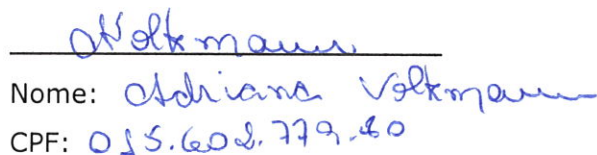 AVolkmann
Nome: Adriana Volkmann
CPF: 015.602.779-10